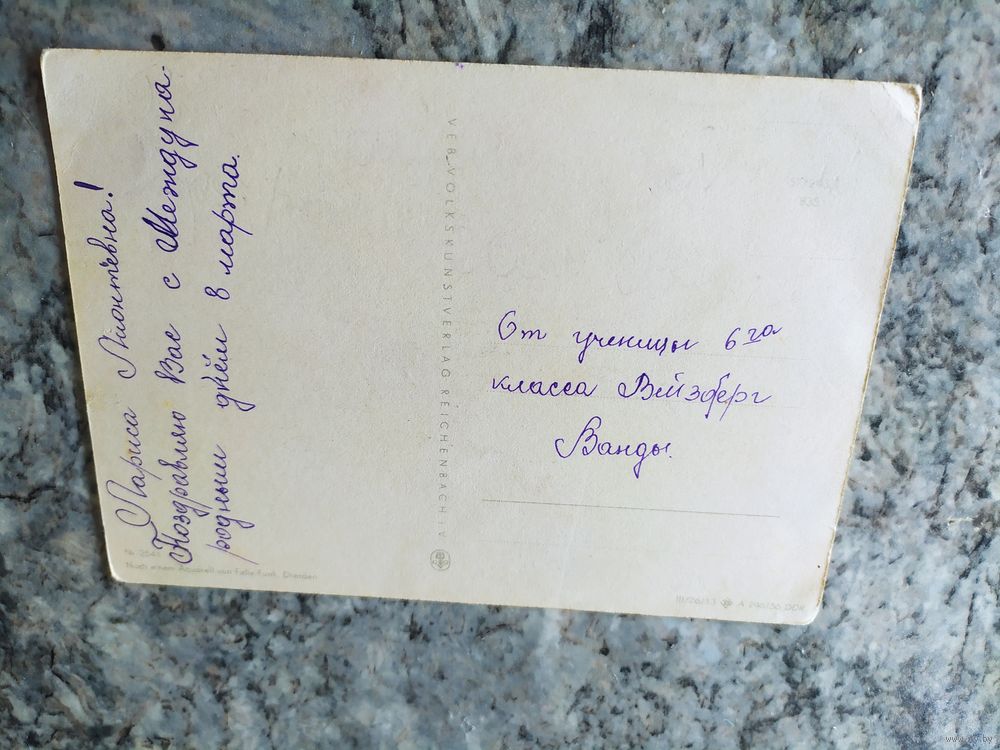 Лариса Лионтевна!
Поздравляю Вас с Междуна-
родным днём 8 марта.
VEB VOLKSKUNSTVERLAG REICHENBACH I. V.
От ученицы 6го
класса Вейзберг
Ванды.
Nach einem Aquarell von Felix Funk, Dresden
III/26/13 A 246/56 DDR